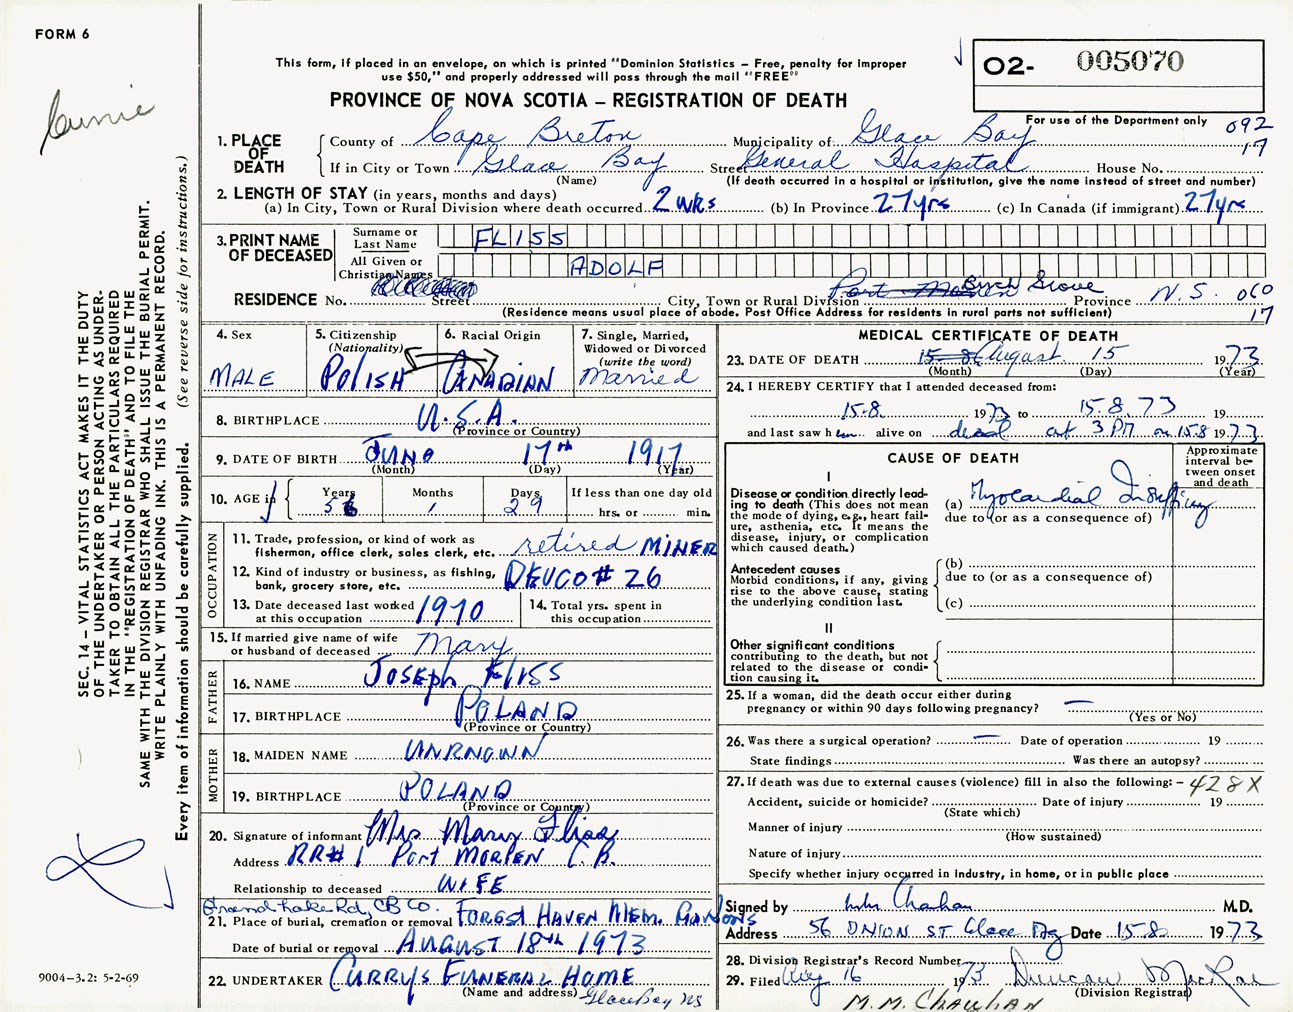 FORM 6
Currie
This form, if placed in an envelope, on which is printed "Dominion Statistics – Free, penalty for improper
use $50," and properly addressed will pass through the mail "FREE"
02- 005070
PROVINCE OF NOVA SCOTIA – REGISTRATION OF DEATH
For use of the Department only 092
17
1. PLACE OF DEATH County of Cape Breton Municipality of Glace Bay
If in City or Town Glace Bay Street General Hospital House No.
(Name) (If death occurred in a hospital or institution, give the name instead of street and number)
2. LENGTH OF STAY (in years, months and days)
(a) In City, Town or Rural Division where death occurred 2 wks (b) In Province 27 yrs (c) In Canada (if immigrant) 27 yrs
3. PRINT NAME OF DECEASED Surname or Last Name FLISS
All Given or Christian Names ADOLF
RESIDENCE No. Street City, Town or Rural Division Port Morien Birch Grove Province N.S. 060
17
(Residence means usual place of abode. Post Office Address for residents in rural parts not sufficient)
4. Sex MALE
5. Citizenship (Nationality) POLISH
6. Racial Origin CANADIAN
7. Single, Married, Widowed or Divorced (write the word) Married
8. BIRTHPLACE U.S.A.
(Province or Country)
9. DATE OF BIRTH JUNE 17th 1917
(Month) (Day) (Year)
10. AGE in Years 56 Months 1 Days 29 If less than one day old
hrs. or min.
OCCUPATION
11. Trade, profession, or kind of work as
fisherman, office clerk, sales clerk, etc. retired MINER
12. Kind of industry or business, as fishing,
bank, grocery store, etc. DEVCO # 26
13. Date deceased last worked
at this occupation 1970
14. Total yrs. spent in
this occupation
15. If married give name of wife
or husband of deceased Mary
FATHER
16. NAME JOSEPH FLISS
17. BIRTHPLACE POLAND
(Province or Country)
MOTHER
18. MAIDEN NAME UNKNOWN
19. BIRTHPLACE POLAND
(Province or Country)
20. Signature of informant Mrs Mary Fliss
Address RR# 1 Port MORIEN C.B.
Relationship to deceased WIFE
Grand Lake Rd, CB Co.
21. Place of burial, cremation or removal FOREST HAVEN MEM. GARDENS
Date of burial or removal AUGUST 18th 1973
22. UNDERTAKER CURRYS FUNERAL HOME
(Name and address) Glace Bay NS
MEDICAL CERTIFICATE OF DEATH
23. DATE OF DEATH 15-8 August 15 1973
(Month) (Day) (Year)
24. I HEREBY CERTIFY that I attended deceased from:
15.8. 1973 to 15.8.73 19
and last saw him alive on dead at 3 PM on 15.8 1973
CAUSE OF DEATH
Approximate
interval be-
tween onset
and death
I
Disease or condition directly lead-
ing to death (This does not
mean the mode of dying, e.g., heart fail-
ure, asthenia, etc. It means the
disease, injury, or complication
which caused death.)
(a) Myocardial
due to (or as a consequence of)
Antecedent causes
Morbid conditions, if any, giving
rise to the above cause, stating
the underlying condition last.
(b)
due to (or as a consequence of)
(c)
II
Other significant conditions
contributing to the death, but not
related to the disease or condi-
tion causing it.
25. If a woman, did the death occur either during
pregnancy or within 90 days following pregnancy? —
(Yes or No)
26. Was there a surgical operation? — Date of operation 19
State findings Was there an autopsy?
27. If death was due to external causes (violence) fill in also the following: – 428X
Accident, suicide or homicide? Date of injury 19
(State which)
Manner of injury
(How sustained)
Nature of injury
Specify whether injury occurred in Industry, in home, or in public place
Signed by M.D.
Address 56 UNION ST Glace Bay Date 15.8 1973
28. Division Registrar's Record Number
29. Filed Aug 16 1973 Duncan MacRae
(Division Registrar)
M.M. CHAUHAN
SEC. 14 – VITAL STATISTICS ACT MAKES IT THE DUTY
OF THE UNDERTAKER OR PERSON ACTING AS UNDER-
TAKER TO OBTAIN ALL THE PARTICULARS REQUIRED
IN THE "REGISTRATION OF DEATH" AND TO FILE THE
SAME WITH THE DIVISION REGISTRAR WHO SHALL ISSUE THE BURIAL PERMIT.
WRITE PLAINLY WITH UNFADING INK. THIS IS A PERMANENT RECORD.
Every item of information should be carefully supplied. (See reverse side for instructions.)
9004-3.2: 5-2-69